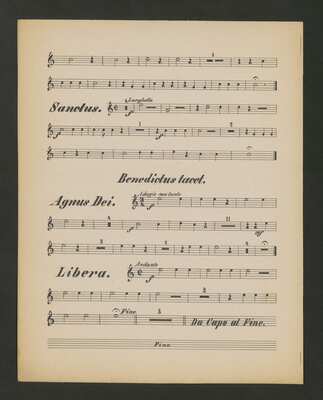 1
Sanctus. Larghetto
1 2
Benedictus tacet.
Agnus Dei. Adagio non tanto
4 1 11
ff
1 4
Libera. Andante
2
Fine. 3 Da Capo al Fine.
Fine